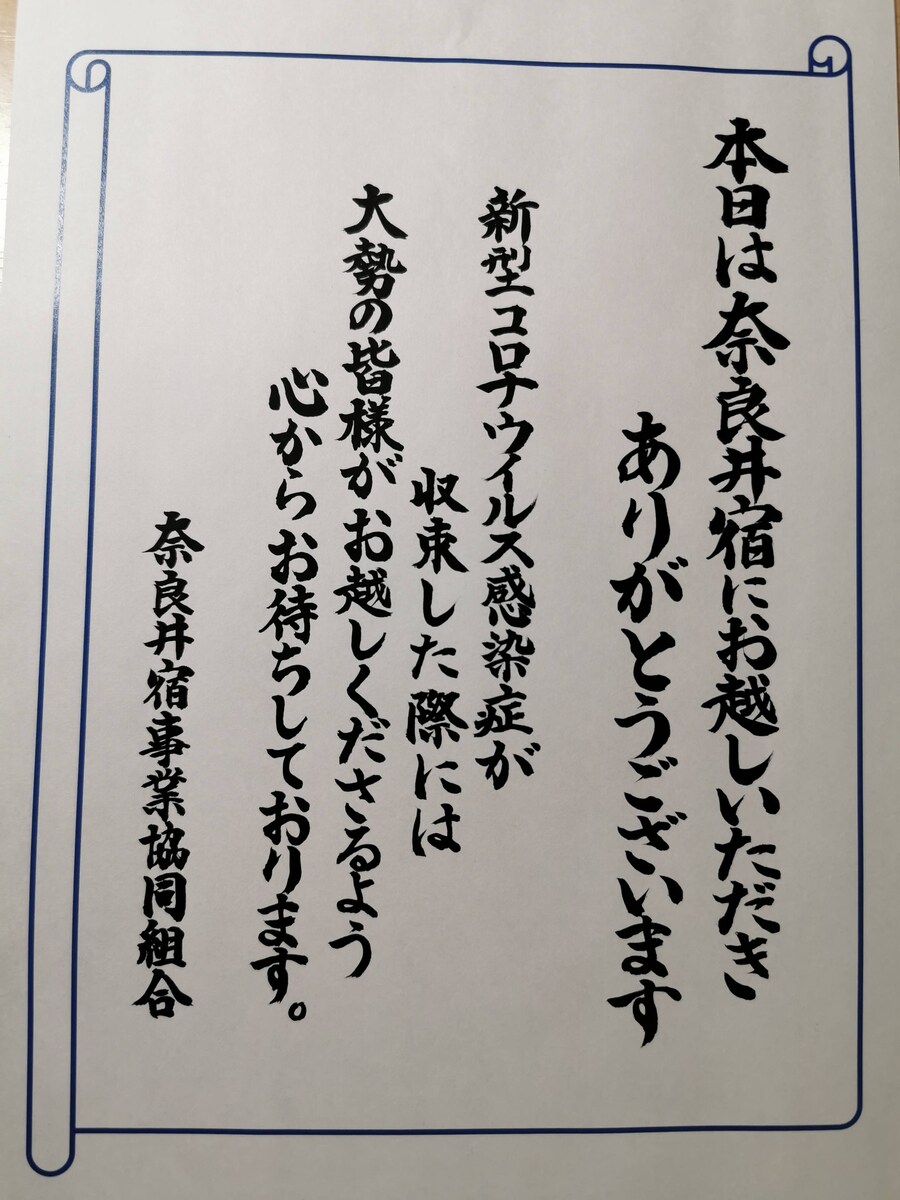 本日は奈良井宿にお越しいただき
ありがとうございます
新型コロナウイルス感染症が
収束した際には
大勢の皆様がお越しくださるよう
心からお待ちしております。
奈良井宿事業協同組合